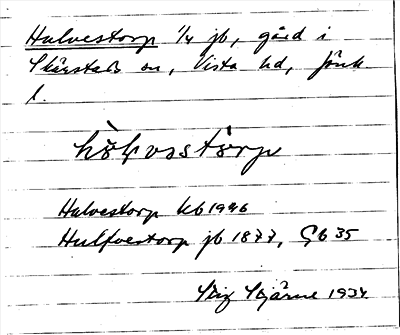 Halvestorp 1/4 jb, gård i
Skärstads sn, Vista hd, Jönk
l.
hòl̥vsstòrp
Halvestorp kb 1946
Hulfvestorp jb 1877, Gb 35
Stig Stjärne 1934